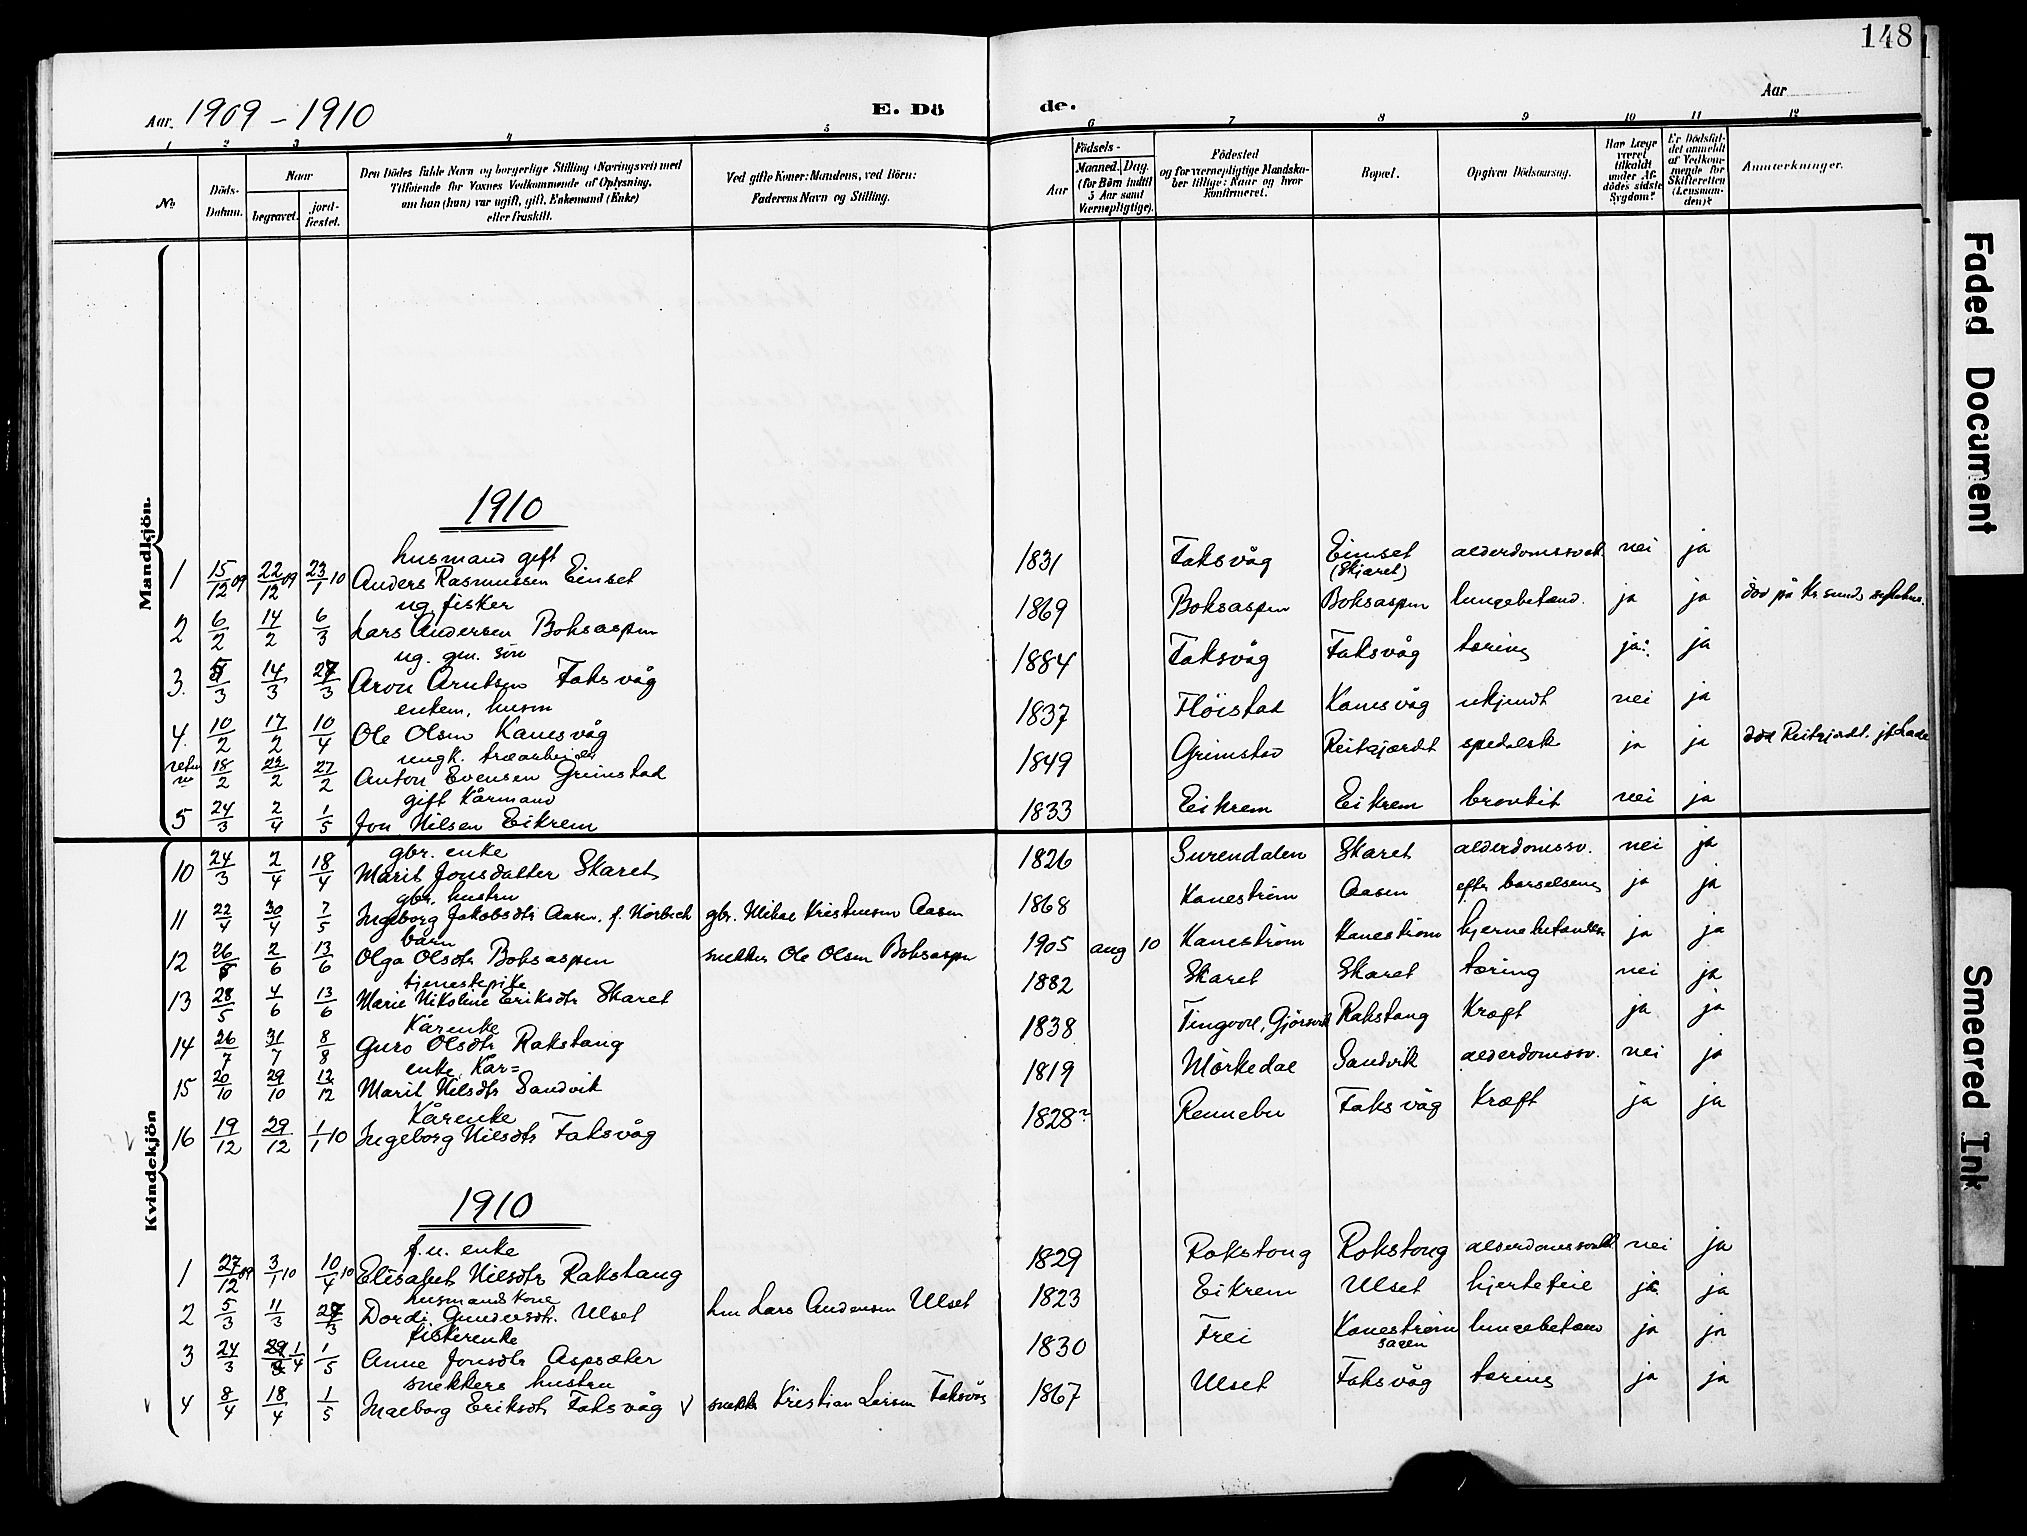 148
Aar. 1909 - 1910
E. Dö
de.
Aar
1 2 3 4 5 6 7 8 9 10 11 12
No.
Döds-Datum.
Naar
begravet.
jord-fæstet.
Den Dödes fulde Navn og borgerlige Stilling (Næringsvei) med
Tilföiende for Voxnes Vedkommende af Oplysning,
om han (hun) var ugift, gift, Enkemand (Enke)
eller fraskilt.
Ved gifte Koner: Mandens, ved Börn:
Faderens Navn og Stilling.
Födsels-
Aar
Maaned. Dag.
(for Börn indtil
5 Aar samt
Værnepligtige).
Födested
og for værnepligtige Mandska-
ber tillige: Naar og hvor
konfirmeret.
Bopæl.
Opgiven Dödsaarsag.
Har Læge
været
tilkaldt
under Af-
dödes sidste
Sygdom?
Er Dödsfal-
det anmeldt
af Vedkom-
mende for
Skifteretten
(Lensman-
den)?
Anmærkninger.
Mandkjön.
1910
husmand gift
1 15/12 09 22/12 09 23/1 10 Anders Rasmussen Einset 1831 Faksvåg Einset (Skjæret) alderdomssvak. nei ja
ug. fisker
2 6/2 14/2 6/3 Lars Andersen Boksaspen 1869 Boksaspen Boksaspen lungebetænd. ja ja död på Kr.sunds sykehus.
ug. gm. sön
3. 5/3 14/3 27/3 Aron Arntsen Faksvåg 1884 Faksvåg Faksvåg tæring ja ja
enkem. husm
4. 10/2 17/2 10/4 Ole Olsen Kanesvåg 1837 Flöistad Kanesvåg ukjendt nei ja
ungk. træarbeider
18/2 22/2 27/2 Anton Evensen Grimstad 1849 Grimstad Reitgjærdt spedalsk ja ja död Reitgjærdt.
gift Kårmand
5 24/3 2/4 1/5 Jon Nilsen Eikrem 1833 Eikrem Eikrem bronkit nei ja
Kvindekjön
gbr. enke
10 24/3 2/4 18/4 Marit Jonsdatter Skaret 1826 Surendalen Skaret alderdomssv. nei ja
gbr. hustru
11 22/4 30/4 7/5 Ingeborg Jakobsdtr Aasen, f. Nörbech gbr. Mikal Kristensen Aasen 1868 Kaneström Aasen efter barselseng ja ja
barn
12 26/5 2/6 13/6 Olga Olsdtr Boksaspen snekker Ole Olsen Boksaspen 1905 aug 10 Kaneström Kaneström hjernebetændelse ja ja
tjenestepike
13 28/5 4/6 13/6 Marie Nikoline Eriksdtr Skaret 1882 Skaret Skaret tæring nei ja
Kårenke
14 26/7 31/7 8/8 Guro Olsdtr Rakstang 1838 Tingvoll, Gjörsvik Rakstang Kræft ja ja
enke, Kår=
15 20/10 29/10 12/12 Marit Nilsdtr Sandvik 1819 Mörkedal Sandvik alderdomssv. nei ja
Kårenke
16 19/12 29/12 1/1 10 Ingeborg Nilsdtr Faksvåg 1828? Rennebu Faksvåg Kræft ja ja
1910
f.u. enke
1 27/12 09 3/1 10 10/4 10 Elisabet Nilsdtr Rakstang 1829 Rakstang Rakstang alderdomssvakh nei ja
husmandskone
2 5/3 11/3 27/3 Dordi Gundersdtr. Ulset hm Lars Andersen Ulset 1823 Eikrem Ulset hjertefeil ja ja
fiskerenke
3 24/3 1/4 1/5 Anne Jonsdtr Aspsæter 1830 Frei Kaneström sagen lungebetænd ja ja
snekkers hustru
4 8/4 18/4 1/5 Ingeborg Eriksdtr Faksvåg V snekk Kristian Larsen Faksvåg 1867 Ulset Faksvåg tæring ja ja
Faded Document
Smeared Ink